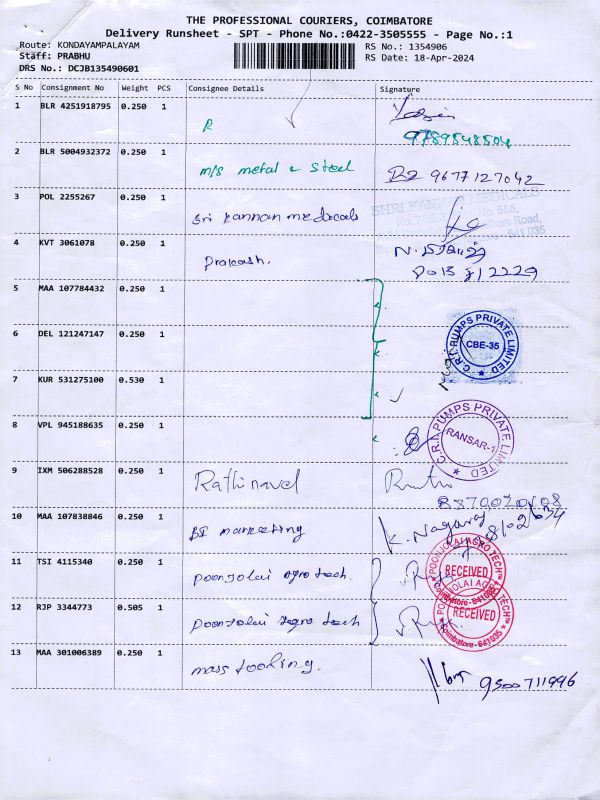 THE PROFESSIONAL COURIERS, COIMBATORE
Delivery Runsheet - SPT - Phone No.:0422-3505555 - Page No.:1
Route: KONDAYAMPALAYAM
Staff: PRABHU
DRS No.: DCJB135490601
RS No.: 1354906
RS Date: 18-Apr-2024
S No Consignment No Weight PCS Consignee Details Signature
1 BLR 4251918795 0.250 1
R
9789548504
2 BLR 5004932372 0.250 1
m/s metal & steel 9677127042
3 POL 2255267 0.250 1
Sri Kannan medicals
SHRI KANNAN MEDICALS
641 035
4 KVT 3061078 0.250 1
Prakash.
5 MAA 107784432 0.250 1
6 DEL 121247147 0.250 1
C.R.I. PUMPS PRIVATE LIMITED
CBE-35
7 KUR 531275100 0.530 1
8 VPL 945188635 0.250 1
C.R.I. PUMPS PRIVATE LIMITED
RANSAR-1
9 IXM 506288528 0.250 1
Rathinavel
10 MAA 107838846 0.250 1
marketing K. Nagaraj
11 TSI 4115340 0.250 1
Poonjolai Agro tech.
POONJOLAI AGRO TECH
RECEIVED
12 RJP 3344773 0.505 1
Poonjolai Agro tech
RECEIVED
Coimbatore-641035
13 MAA 301006389 0.250 1
mass tooling.
9500711996